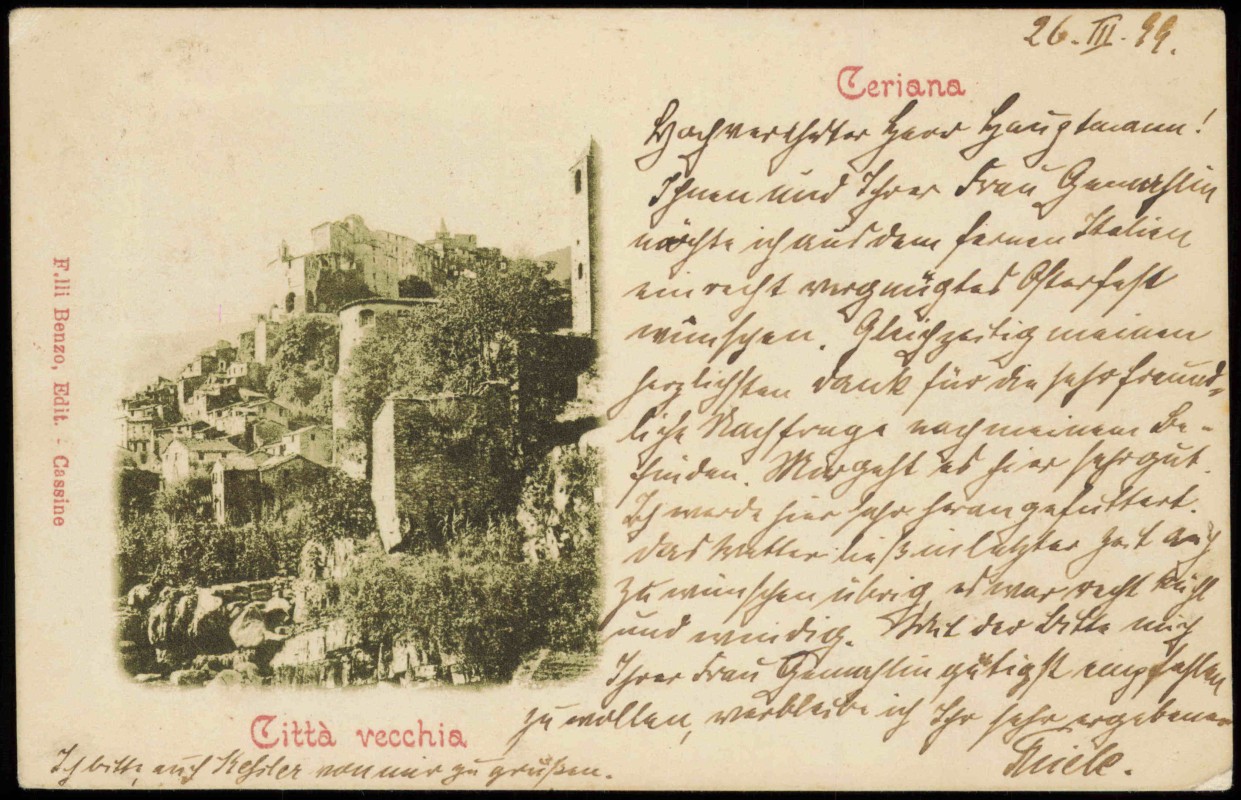 26. III. 99.
Ceriana
Hochverehrter Herr Hauptmann!
Ihnen und Ihrer Frau Gemahlin
möchte ich aus dem fernen Italien
ein recht vergnügtes Osterfest
wünschen. Gleichzeitig meinen
herzlichsten Dank für die sehr freund-
liche Nachfrage nach meinem Be-
finden. Mir geht es hier sehr gut.
Ich werde hier sehr herangefuttert.
Das Wetter ließ in letzter Zeit auch
zu wünschen übrig, es war recht kühl
und windig. Mit der Bitte mich
Ihrer Frau Gemahlin gütigst empfehlen
zu wollen, verbleibe ich Ihr sehr ergebener
Thiele.
F.lli Benzo, Edit. - Cassine
Città vecchia
Ich bitte auch Kessler von mir zu grüßen.